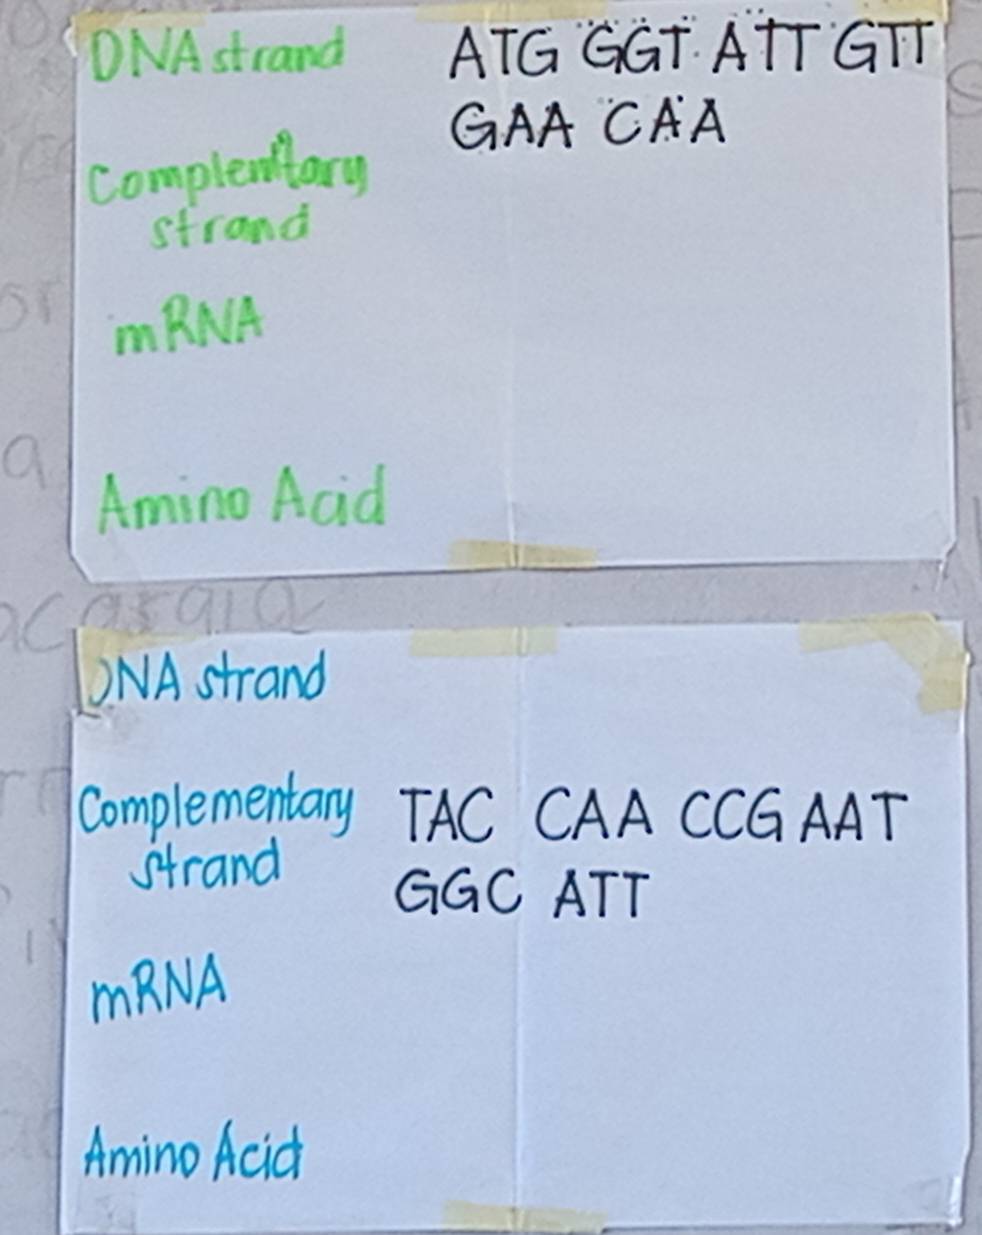 DNA strand ATG GGT ATT GTT
GAA CAA
Complemtary
strand
mRNA
Amino Acid
DNA strand
Complementary TAC CAA CCG AAT
strand GGC ATT
mRNA
Amino Acid